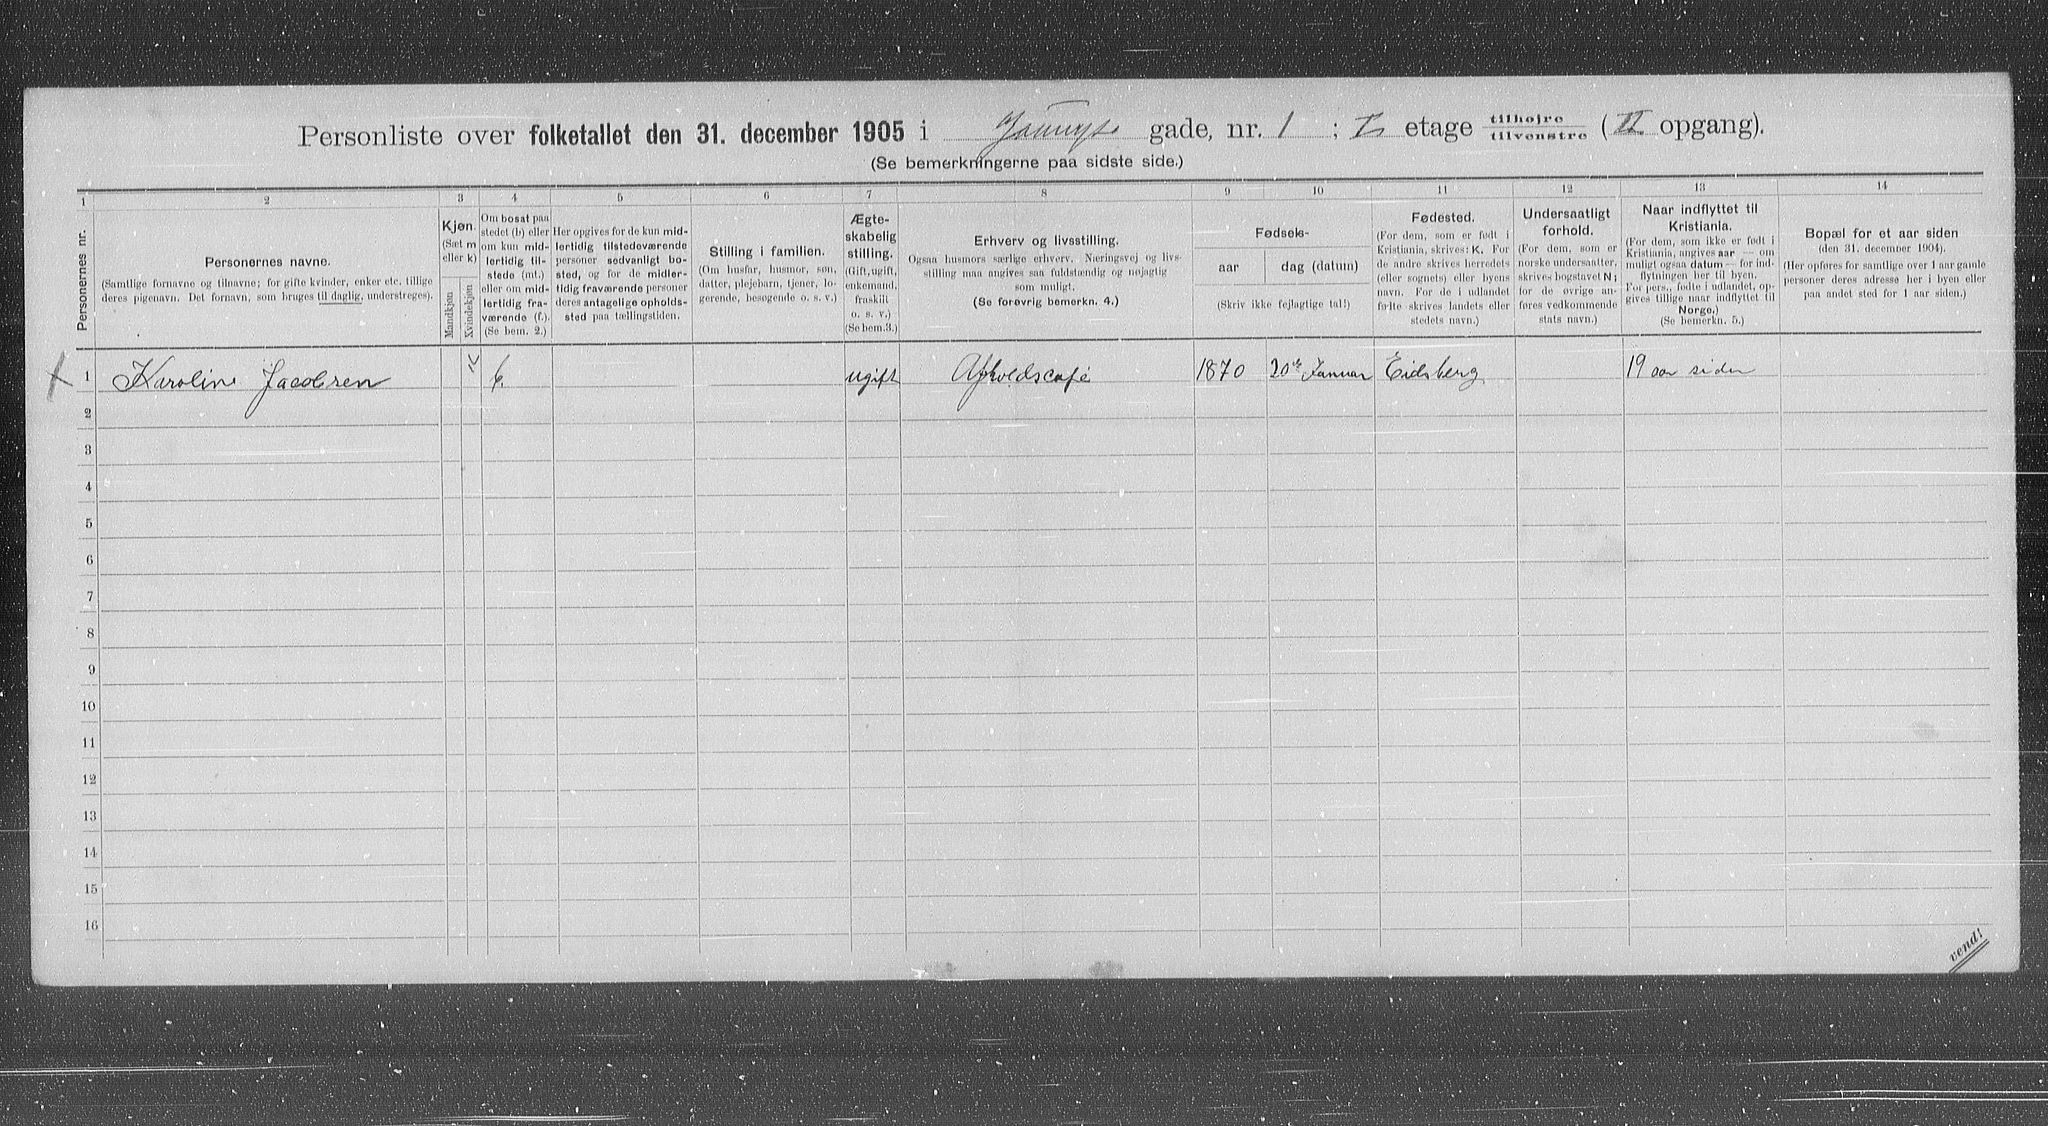 Personliste over folketallet den 31. december 1905 i gade, nr. 1 ; I etage tilhøjre tilvenstre (II opgang).
(Se bemerkningerne paa sidste side.)
1 2 3 4 5 6 7 8 9 10 11 12 13 14
Personernes nr.
Personernes navne.
(Samtlige fornavne og tilnavne; for gifte kvinder, enker etc. tillige
deres pigenavn. Det fornavn, som bruges til daglig, understreges).
Kjøn.
(Sæt m
eller k)
Mandkjøn
Kvindekjøn
Om bosat paa
stedet (b) eller
om kun mid-
lertidig til-
stede (mt.)
eller om mid-
lertidig fra-
værende (f.).
(Se bem. 2.)
Her opgives for de kun mid-
lertidig tilstedeværende
personer sedvanligt bo-
sted, og for de midler-
tidig fraværende personer
deres antagelige opholds-
sted paa tællingstiden.
Stilling i familien.
(Om husfar, husmor, søn,
datter, plejebarn, tjener, lo-
gerende, besøgende o. s. v.)
Ægte-
skabelig
stilling.
(Gift, ugift,
enkemand,
fraskilt
o. s. v.)
(Se bem.3.)
Erhverv og livsstilling.
Ogsaa husmors særlige erhverv. Næringsvej og livs-
stilling maa angives saa fuldstændig og nøjagtig
som muligt.
(Se forøvrig bemerkn. 4.)
Fødsels-
aar
dag (datum)
(Skriv ikke fejlagtige tal!)
Fødested.
(For dem, som er født i
Kristiania, skrives: K. For
de andre skrives herredets
(eller sognets) eller byens
navn. For de i udlandet
fødte skrives landets eller
stedets navn.)
Undersaatligt
forhold.
(For dem, som er
norske undersaatter,
skrives bogstavet N;
for de øvrige an-
føres vedkommende
stats navn.)
Naar indflyttet til
Kristiania.
(For dem, som ikke er født i
Kristiania, angives aar — om
muligt ogsaa datum — for ind-
flytningen her til byen.
For pers., fødte i udlandet, op-
gives tillige naar indflyttet til
Norge.)
(Se bemerkn. 5.)
Bopæl for et aar siden
(den 31. december 1904).
(Her opføres for samtlige over 1 aar gamle
personer deres adresse her i byen eller
paa andet sted for 1 aar siden.)
1 Karoline Jacobsen k b. ugift Afholdscafé 1870 20de Januar Eidsberg 19 aar siden
2
3
4
5
6
7
8
9
10
11
12
13
14
15
16
vend!